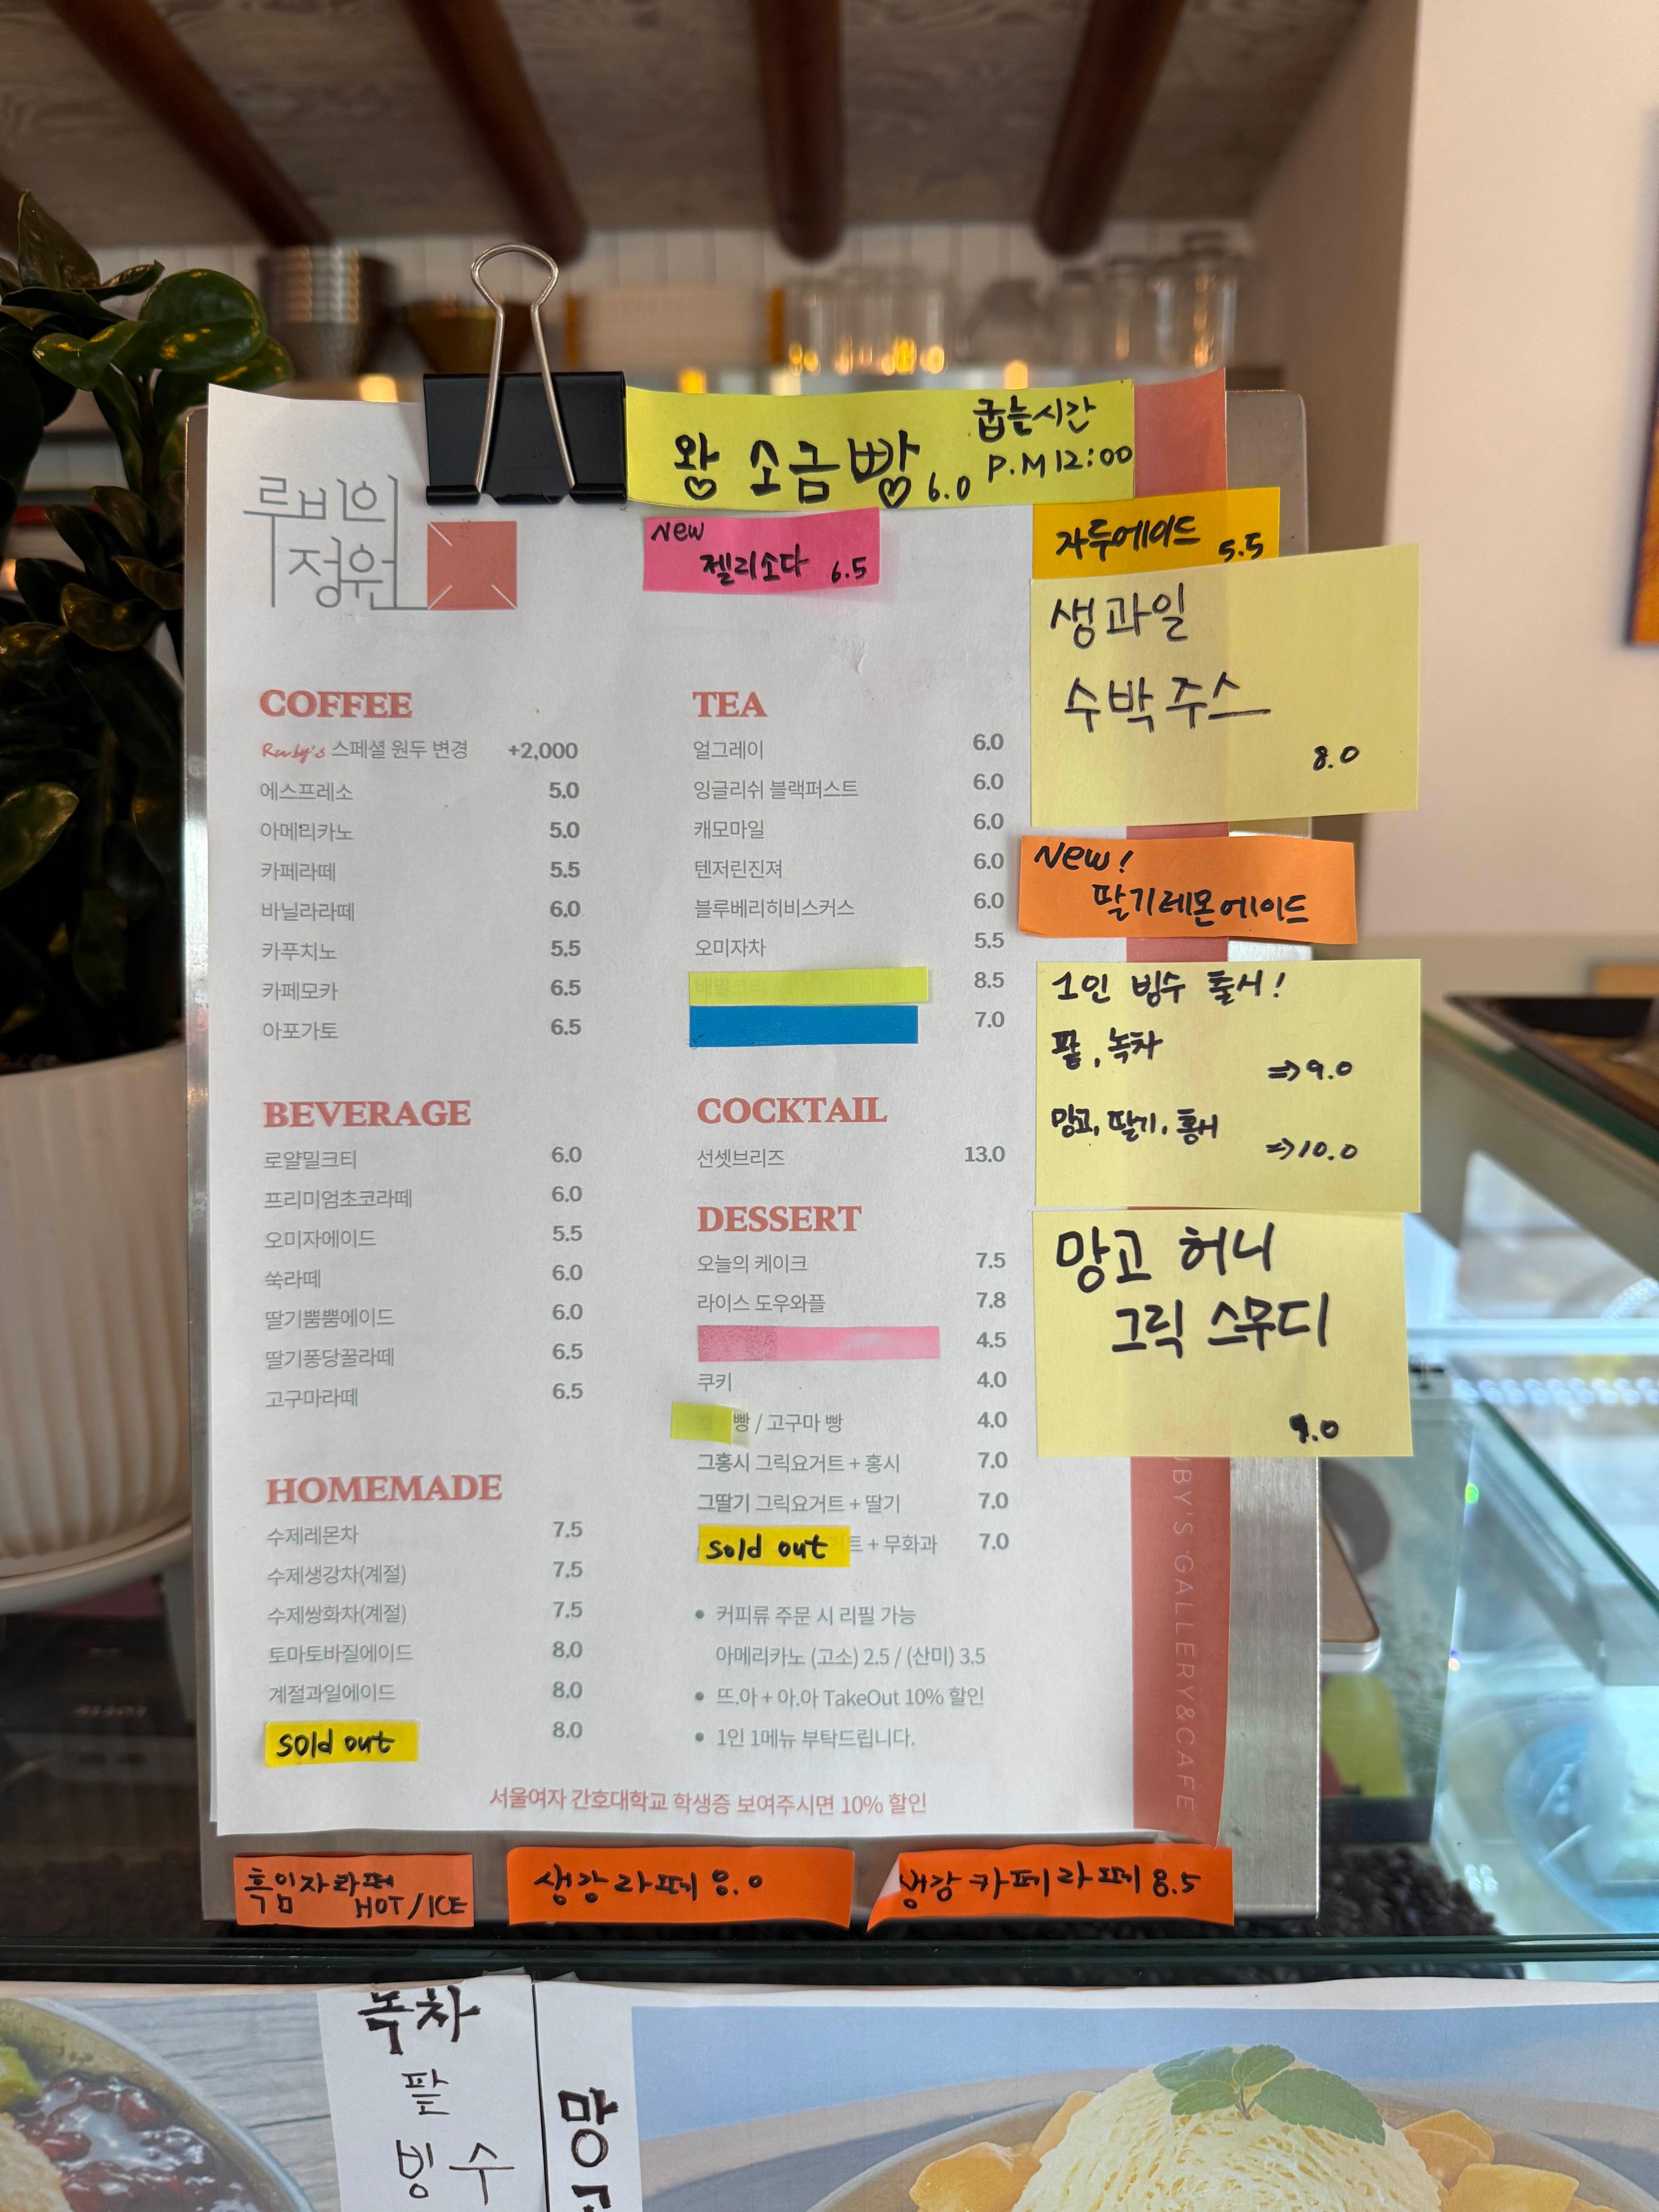 왕 소금빵 6.0
굽는시간
P.M 12:00
루비의
정원
New
젤리소다 6.5
자두에이드 5.5
생과일
수박주스
8.0
New!
딸기레몬에이드
1인 빙수 출시!
팥, 녹차
=> 9.0
망고, 딸기, 홍시
=> 10.0
망고 허니
그릭 스무디
9.0
COFFEE
Ruby's 스페셜 원두 변경 +2,000
에스프레소 5.0
아메리카노 5.0
카페라떼 5.5
바닐라라떼 6.0
카푸치노 5.5
카페모카 6.5
아포가토 6.5
BEVERAGE
로얄밀크티 6.0
프리미엄초코라떼 6.0
오미자에이드 5.5
쑥라떼 6.0
딸기뿜뿜에이드 6.0
딸기퐁당꿀라떼 6.5
고구마라떼 6.5
HOMEMADE
수제레몬차 7.5
수제생강차(계절) 7.5
수제쌍화차(계절) 7.5
토마토바질에이드 8.0
계절과일에이드 8.0
sold out 8.0
TEA
얼그레이 6.0
잉글리쉬 블랙퍼스트 6.0
캐모마일 6.0
텐저린진져 6.0
블루베리히비스커스 6.0
오미자차 5.5
8.5
7.0
COCKTAIL
선셋브리즈 13.0
DESSERT
오늘의 케이크 7.5
라이스 도우와플 7.8
4.5
쿠키 4.0
빵 / 고구마 빵 4.0
그홍시 그릭요거트 + 홍시 7.0
그딸기 그릭요거트 + 딸기 7.0
sold out 트 + 무화과 7.0
• 커피류 주문 시 리필 가능
아메리카노 (고소) 2.5 / (산미) 3.5
• 뜨.아 + 아.아 TakeOut 10% 할인
• 1인 1메뉴 부탁드립니다.
서울여자 간호대학교 학생증 보여주시면 10% 할인
BY'S GALLERY&CAFE
흑임자라떼
HOT/ICE
생강라떼 8.0
생강카페라떼 8.5
녹차
팥
빙수
망